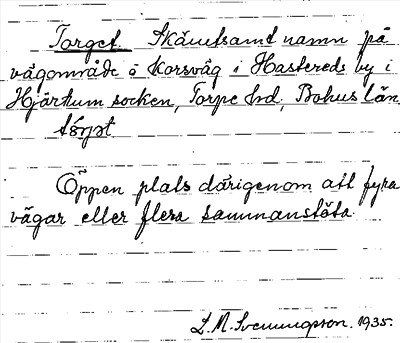 Torget. Skämtsamt namn på
vägområde å Korsväg i Hastereds by i
Hjärtum socken, Torpe hd, Bohus län
tórjət
Öppen plats därigenom att fyra
vägar eller flera sammanstöta.
L. M. Svenungsson. 1935.